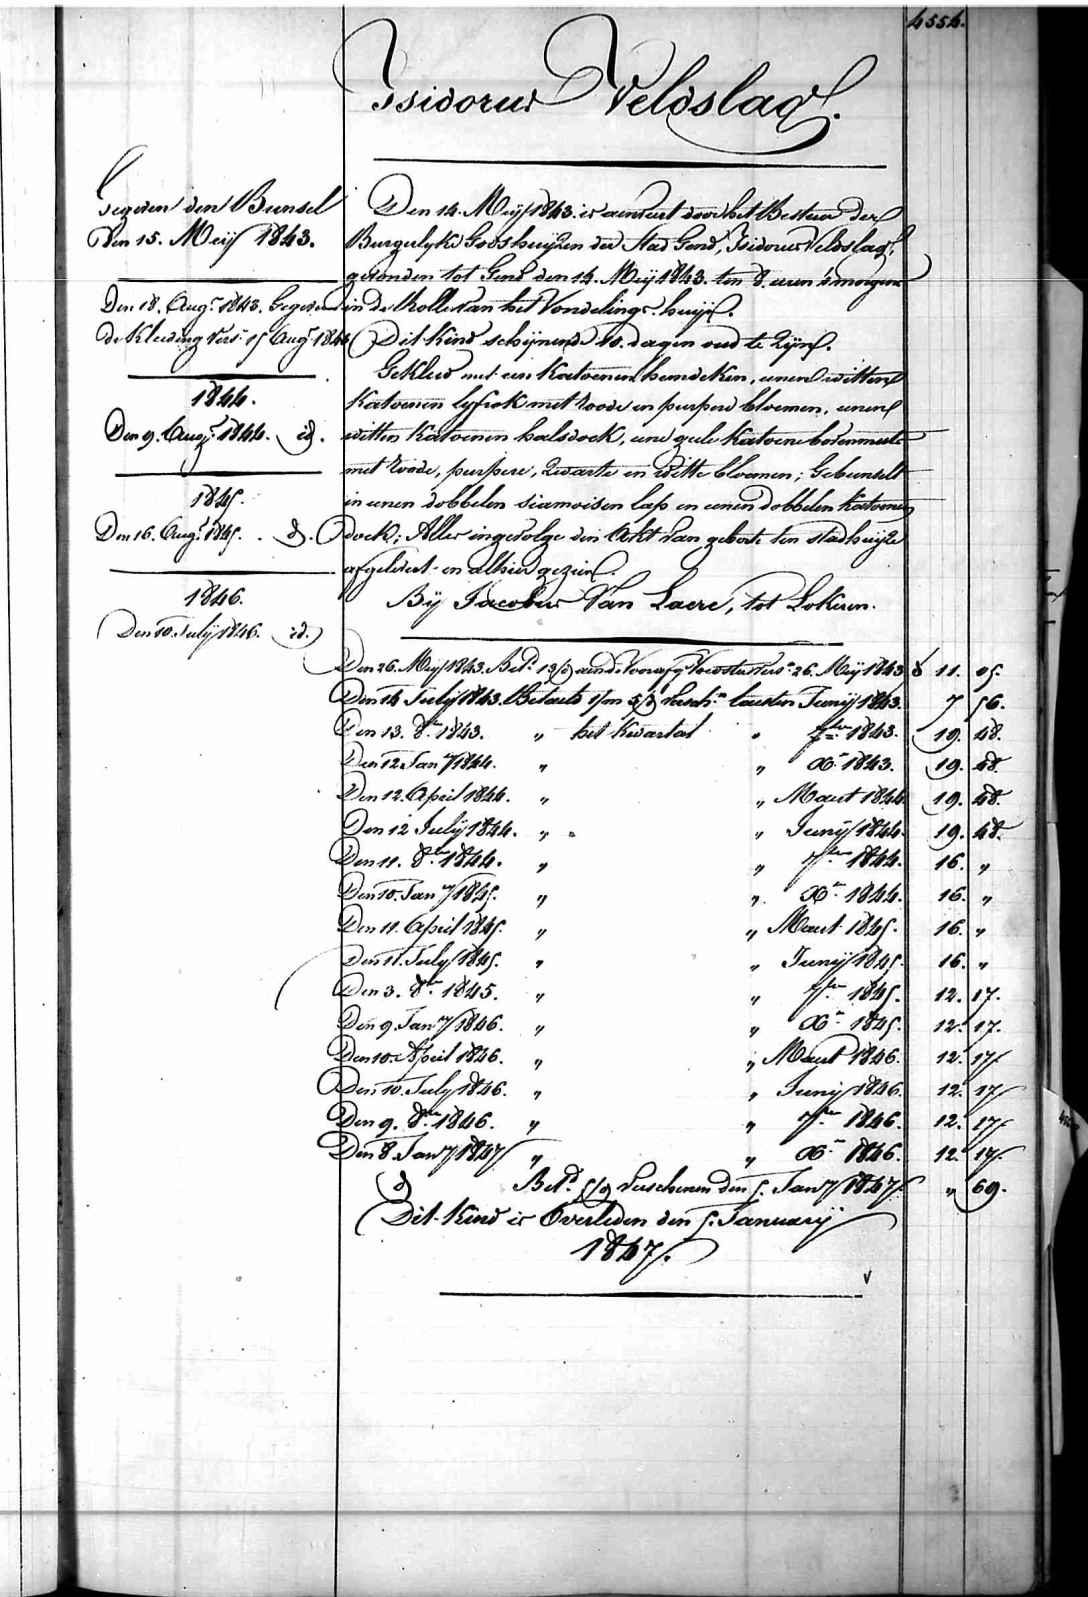 4554.
Isidorus Veldslag.
Gegeven den Bunsel
Den 15. Meij 1843.
Den 18. Augt. 1843. Gegeven
de Kleeding vers. 15 Augt. 1844
1844.
Den 9. Augt. 1844. id.
1845.
Den 16. Augt. 1845. id.
1846.
Den 10. Julij 1846. id.
Den 14. Meij 1843. is aenveert door het Bestuer der
Burgerlyke Godshuijzen der Stad Gend, Isidorus Veldslag,
gevonden tot Gend den 14. Meij 1843. ten 8. uren 's morgens
in de Rolle van het Vondelings-huijs.
Dit kind schijnende 10. dagen oud te Zijn.
Gekleed met een Katoenen hemdeken, eenen witten
Katoenen lyfrok met roode en purpere bloemen, eenen
witten Katoenen halsdoek, eene geele Katoene bovenmuts
met roode, purpere, Zwarte en witte bloemen; Gebunselt
in eenen dobbelen siamoisen lap en eenen dobbelen Katoenen
doek; Alles ingevolge den Ackt van geborte ten stadhuijze
afgelevert en alhier gezien.
Bij Jacobus Van Laere, tot Lokeren.
Den 26. Meij 1843. Betd. aende Voorafg. Voedster vers. 26. Meij 1843 11. 05.
Den 14 Julij 1843. Betaelt 1/m 5/d versch. laesten Junij 1843. 7 56.
Den 13. 8bre 1843. " het Kwartael " 7bre 1843. 19. 48.
Den 12 Jany 1844. " " Xbr 1843. 19. 48.
Den 12. April 1844. " " Maert 1844 19. 48.
Den 12 Julij 1844. " " " Junij 1844. 19. 48.
Den 11. 8bre 1844. " " 7bre 1844. 16. "
Den 10. Jany 1845. " " Xbr 1844. 16. "
Den 11. April 1845. " " Maert 1845. 16. "
Den 11. July 1845. " " Junij 1845. 16. "
Den 3. 8bre 1845. " " 7bre 1845. 12. 17.
Den 9. Jany 1846. " " Xbr 1845. 12. 17.
Den 10. April 1846. " " Maert 1846. 12. 17.
Den 10. July 1846. " " Junij 1846. 12. 17
Den 9. 8bre 1846. " " 7bre 1846. 12. 17.
Den 8. Jany 1847 " " Xbr 1846. 12. 17.
Betd. 5/d verschenen den 5. Jany 1847. " 69.
Dit Kind is Overleden den 5. January
1847.